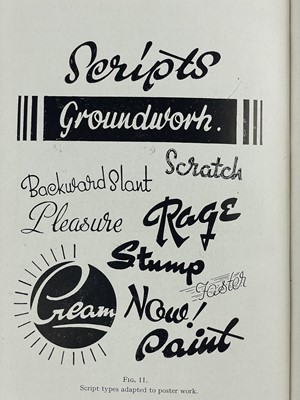 Scripts
Groundwork.
Scratch
Backward Slant
Pleasure
Rage
Stump
Faster
Cream
Now!
Paint
Fig. 11.
Script types adapted to poster work.